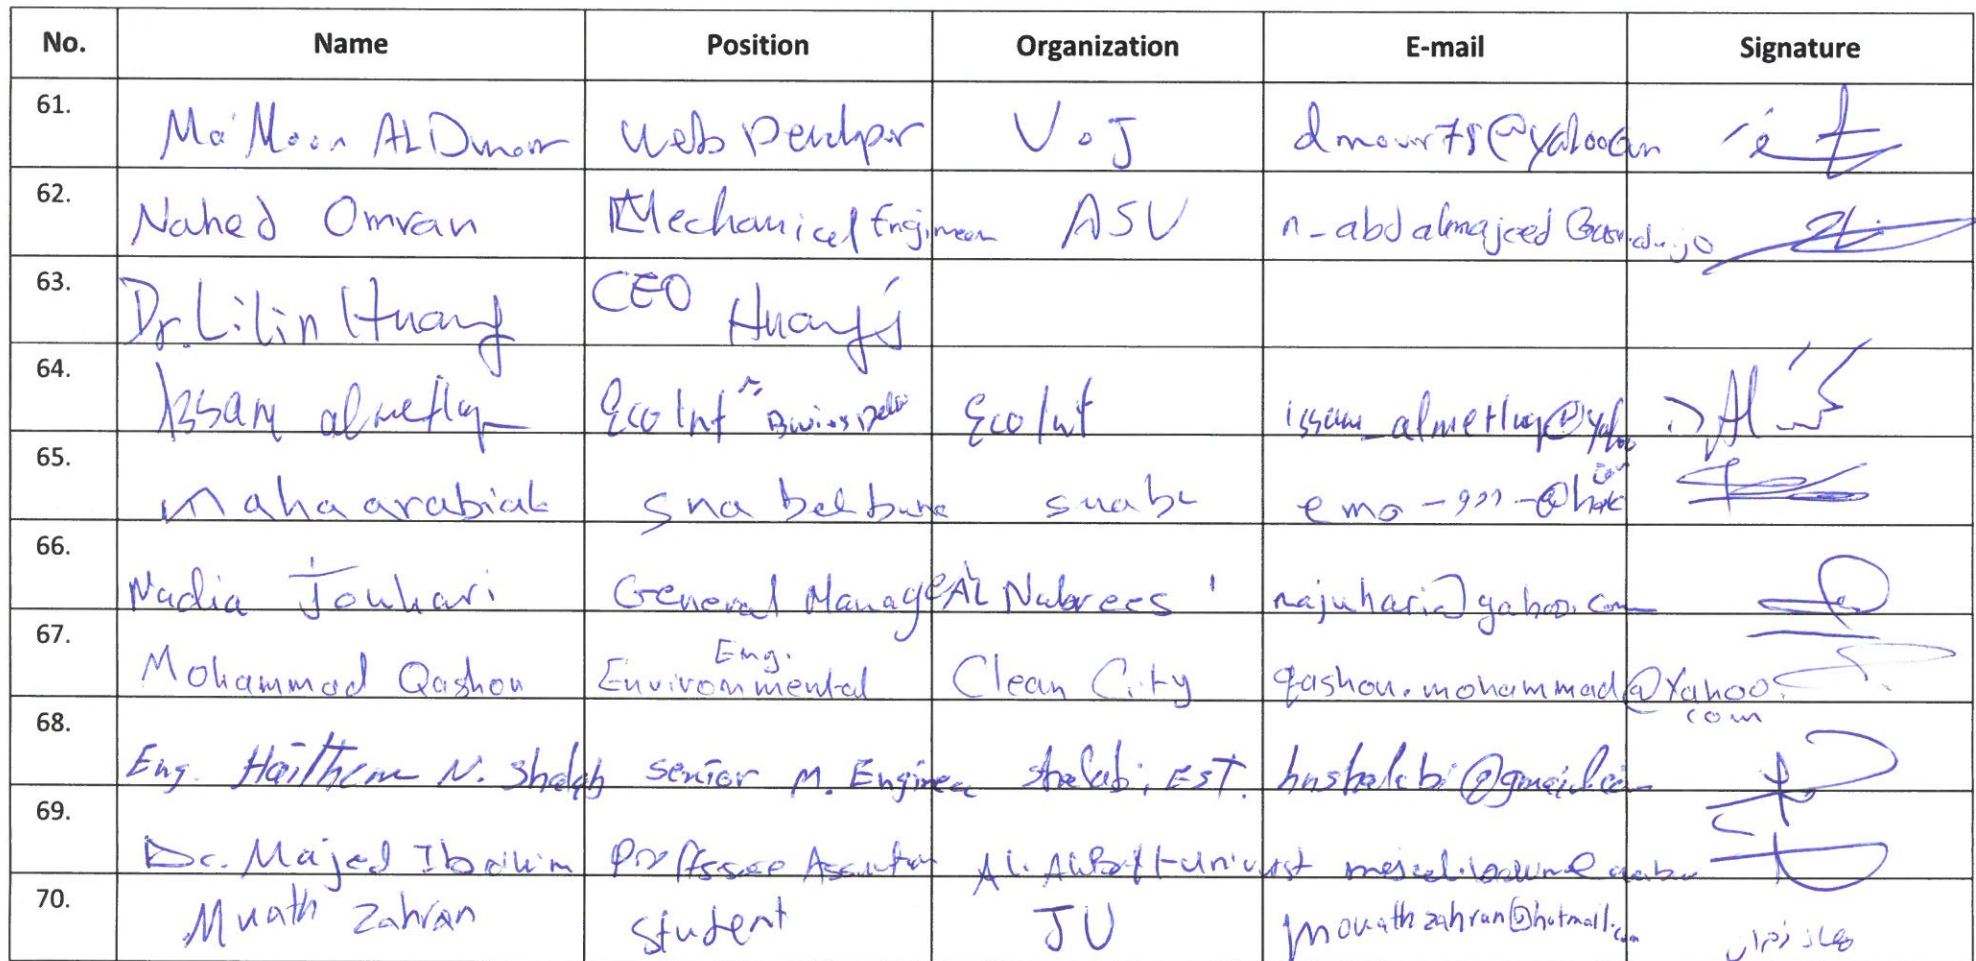 No. Name Position Organization E-mail Signature
61. Ma'Moon AL Dmour Web Developer UoJ dmour78@yahoo.com
62. Nahed Omran Mechanical Engineer ASU n_abdalmajeed
63. Dr. Lilin Huang CEO Huang's
64. Issam almefleh Eco Int Eco Int
65. maha arabiat
66. Nadia Jouhari General Manager AL Nubrees najuhari@yahoo.com
67. Mohammad Qashou Environmental Eng. Clean City qashou.mohammad@Yahoo.com
68. Eng. Haitham N. Shalabi senior M. Engineer Shalabi EST. hnshalabi@gmail.com
69. Dr. Majed Ibrahim Professor
70. Muath Zahran student JU mouathzahran@hotmail.com معاذ زهران